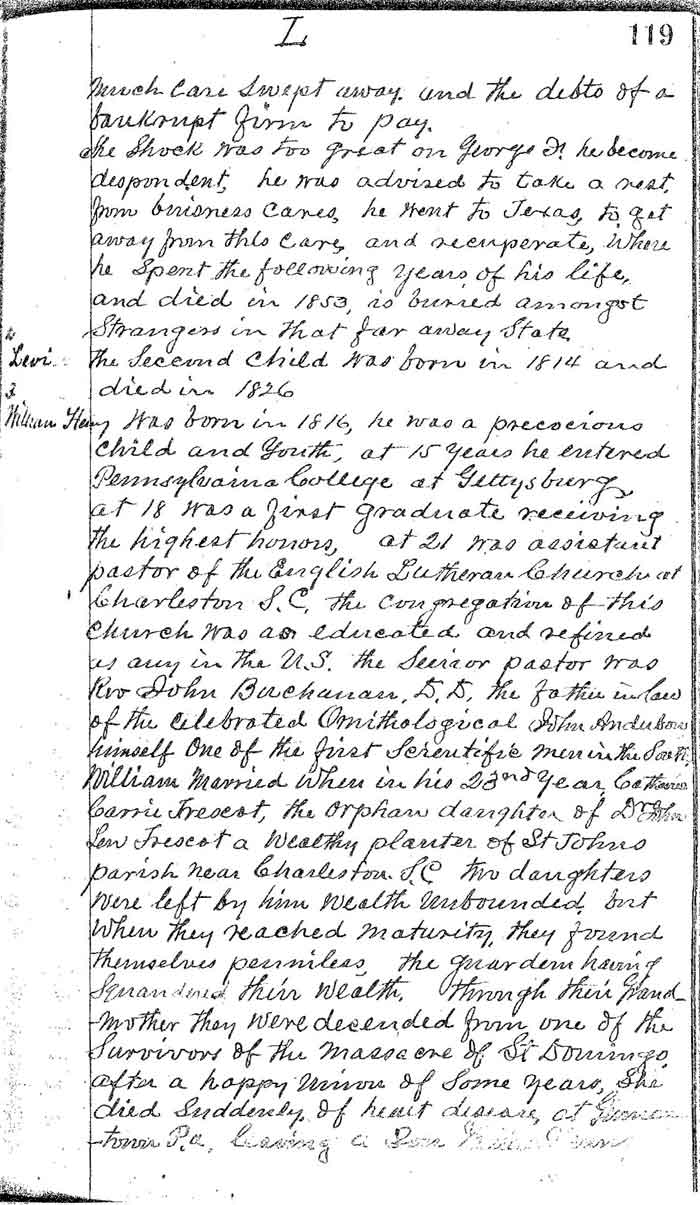 L
119
much care swept away. and the debts of a
bankrupt firm to pay.
the Shock was too great on George F. he become
despondent, he was advised to take a rest,
from buisness cares, he went to Texas, to get
away from this care, and recuperate, Where
he Spent the following years, of his life,
and died in 1853, is buried amongst
Strangers in that far away State,
2
Levi
the Second Child was born in 1814 and
died in 1826
3
William Henry was born in 1816, he was a precocious
child and Youth, at 15 Years he entered
Pennsylvaina College at Gettysburg,
at 18 was a first graduate receiving
the highest honors, at 21 was assistant
pastor of the English Lutheran Church at
Charleston S.C, the congregation of this
church was as educated and refined
as any in the U.S. the Senior pastor was
Rev John Buchanan, D.D, the father in law
of the celebrated Ornithological John
himself One of the first Scientific men in the South,
William Married When in his 23nd Year, Catharine
Carrie Trescot, the Orphan daughter of Dr John
Lew Trescot a Wealthy planter of St Johns
parish near Charleston S.C two daughters
were left by him wealth Unbounded, but
When they reached maturity, they found
themselves penniless, the guardein having
Squandered their wealth, through their Grand-
-mother they were decended from one of the
Survivors of the Massacre of St Domingo
after a happy Union of Some years, She
died Suddenly, of heart disease, at German
-town P.a, leaving a Son